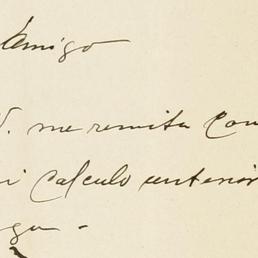 Amigo
V. me remita con
mi calculo anterior